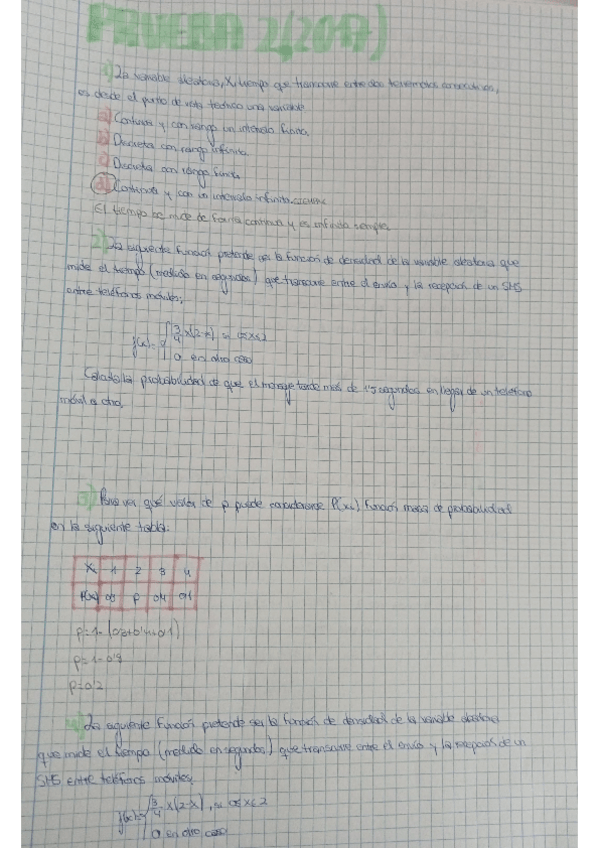 PRUEBA 2 (2017)
1) La variable aleatoria, X, tiempo que transcurre entre dos terremotos consecutivos,
es desde el punto de vista teórico una variable
a) Continua y con rango un intervalo finito.
b) Discreta con rango infinito.
c) Discreta con rango finito.
d) Continua y con un intervalo infinito.
El tiempo se mide de forma continua y es infinito siempre.
2) La siguiente función pretende ser la función de densidad de la variable aleatoria que
mide el tiempo (medido en segundos) que transcurre entre el envío y la recepción de un SMS
entre teléfonos móviles;
f(x) = { 3/4 x(2-x), 0≤x≤2
0 en otro caso
Calcula la probabilidad de que el mensaje tarde más de 1'5 segundos en llegar de un teléfono
móvil a otro.
3) Para ver qué valor de p puede considerarse P(x) función masa de probabilidad
en la siguiente tabla:
X 1 2 3 4
P(x) 0'3 p 0'4 0'1
p=1-(0'3+0'4+0'1)
p=1-0'8
p=0'2
4) La siguiente función pretende ser la función de densidad de la variable aleatoria
que mide el tiempo (medido en segundos) que transcurre entre el envío y la recepción de un
SMS entre teléfonos móviles.
f(x) = { 3/4 x(2-x), 0≤x≤2
0 en otro caso